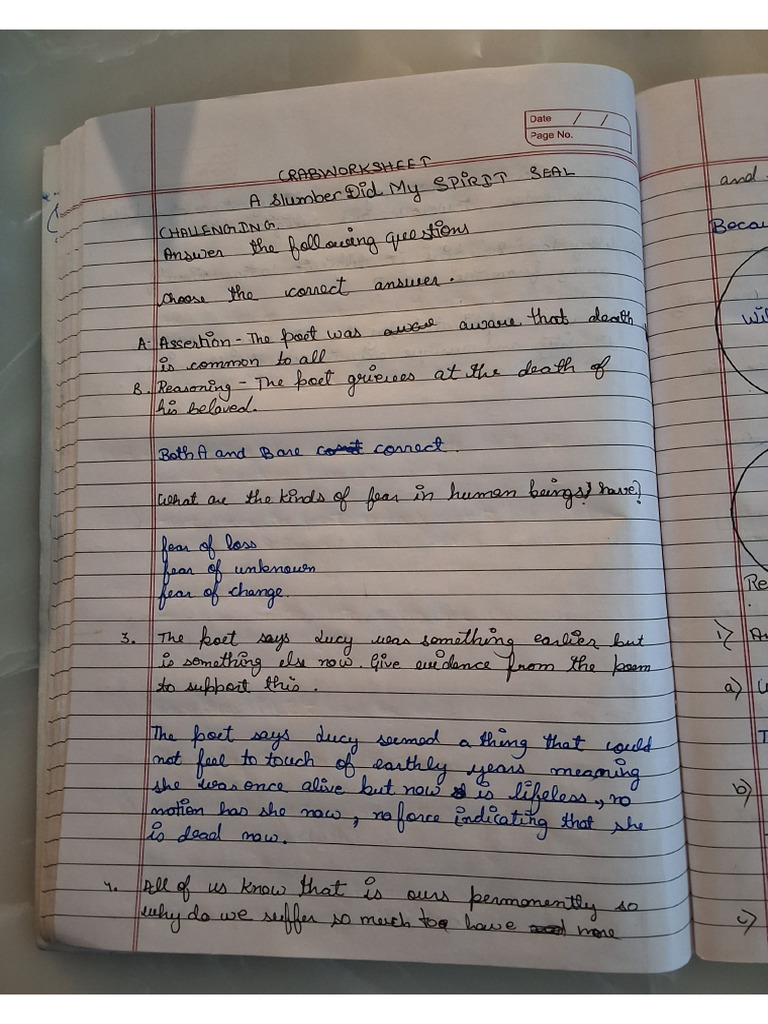 Date / /
Page No.
CRABWORKSHEET
A Slumber Did My SPIRIT SEAL
CHALLENGING.
Answer the following questions
Choose the correct answer.
A- Assertion - The poet was aware that death
is common to all
B. Reasoning - The poet grieves at the death of
his beloved.
Both A and B are correct.
What are the kinds of fear in human beings? have?
fear of loss
fear of unknown
fear of change.
3. The poet says Lucy was something earlier but
is something else now. Give evidence from the poem
to support this.
The poet says Lucy seemed a thing that could
not feel to touch of earthly years meaning
she was once alive but now is lifeless, no
motion has she now, no force indicating that she
is dead now.
4. All of us know that is ours permonently so
why do we suffer so much to have more
and
Becau
Wil
Re
i) A
a)
T
b)
c)